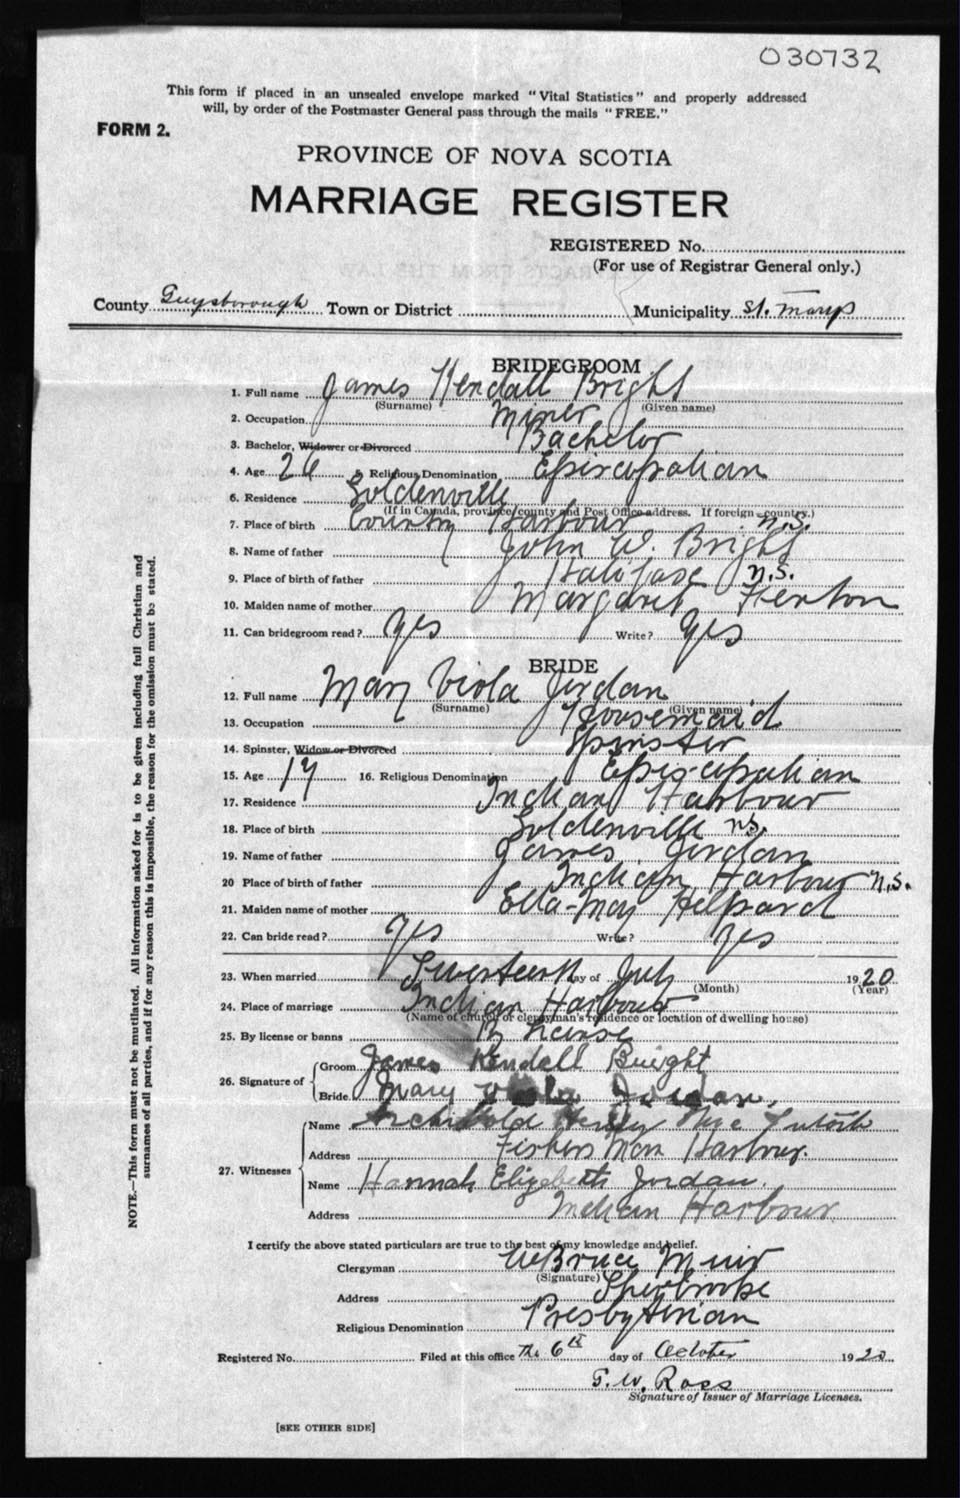 030732
This form if placed in an unsealed envelope marked "Vital Statistics" and properly addressed
will, by order of the Postmaster General pass through the mails "FREE."
FORM 2.
PROVINCE OF NOVA SCOTIA
MARRIAGE REGISTER
REGISTERED No.
(For use of Registrar General only.)
County Guysborough Town or District Municipality St. Marys
BRIDEGROOM
1. Full name James Kendall Bright
(Surname) (Given name)
2. Occupation Miner
3. Bachelor, Widower or Divorced Bachelor
4. Age 26 5 Religious Denomination Episcopalian
6. Residence Goldenville
(If in Canada, province/county and Post Office address. If foreign country.)
7. Place of birth Country Harbour N.S.
8. Name of father John W. Bright
9. Place of birth of father Halifax N.S.
10. Maiden name of mother Margaret
11. Can bridegroom read? Yes Write? Yes
BRIDE
12. Full name Mary Viola Jordan
(Surname) (Given name)
13. Occupation Housemaid
14. Spinster, Widow or Divorced Spinster
15. Age 16. Religious Denomination Episcopalian
17. Residence Indian Harbour
18. Place of birth Goldenville N.S.
19. Name of father James Jordan
20 Place of birth of father Indian Harbour N.S.
21. Maiden name of mother Ella-May
22. Can bride read? Yes Write? Yes
23. When married day of July 1920
(Month) (Year)
24. Place of marriage Indian Harbour
(Name of church or clergyman's residence or location of dwelling house)
25. By license or banns By license
26. Signature of Groom James Kendell Bright
Bride Mary Viola Jordan.
27. Witnesses
Name Archibold Henry
Address Fishers Man Harbour.
Name Hannah Elizabeth Jordan.
Address Indian Harbour.
I certify the above stated particulars are true to the best of my knowledge and belief.
Clergyman Bruce Muir
(Signature)
Address Sherbrooke
Religious Denomination Presbyterian
Registered No. Filed at this office The 6th day of October 1920
Ross
Signature of Issuer of Marriage Licenses.
[SEE OTHER SIDE]
NOTE.—This form must not be mutilated. All information asked for is to be given including full Christian and
surnames of all parties, and if for any reason this is impossible, the reason for the omission must be stated.